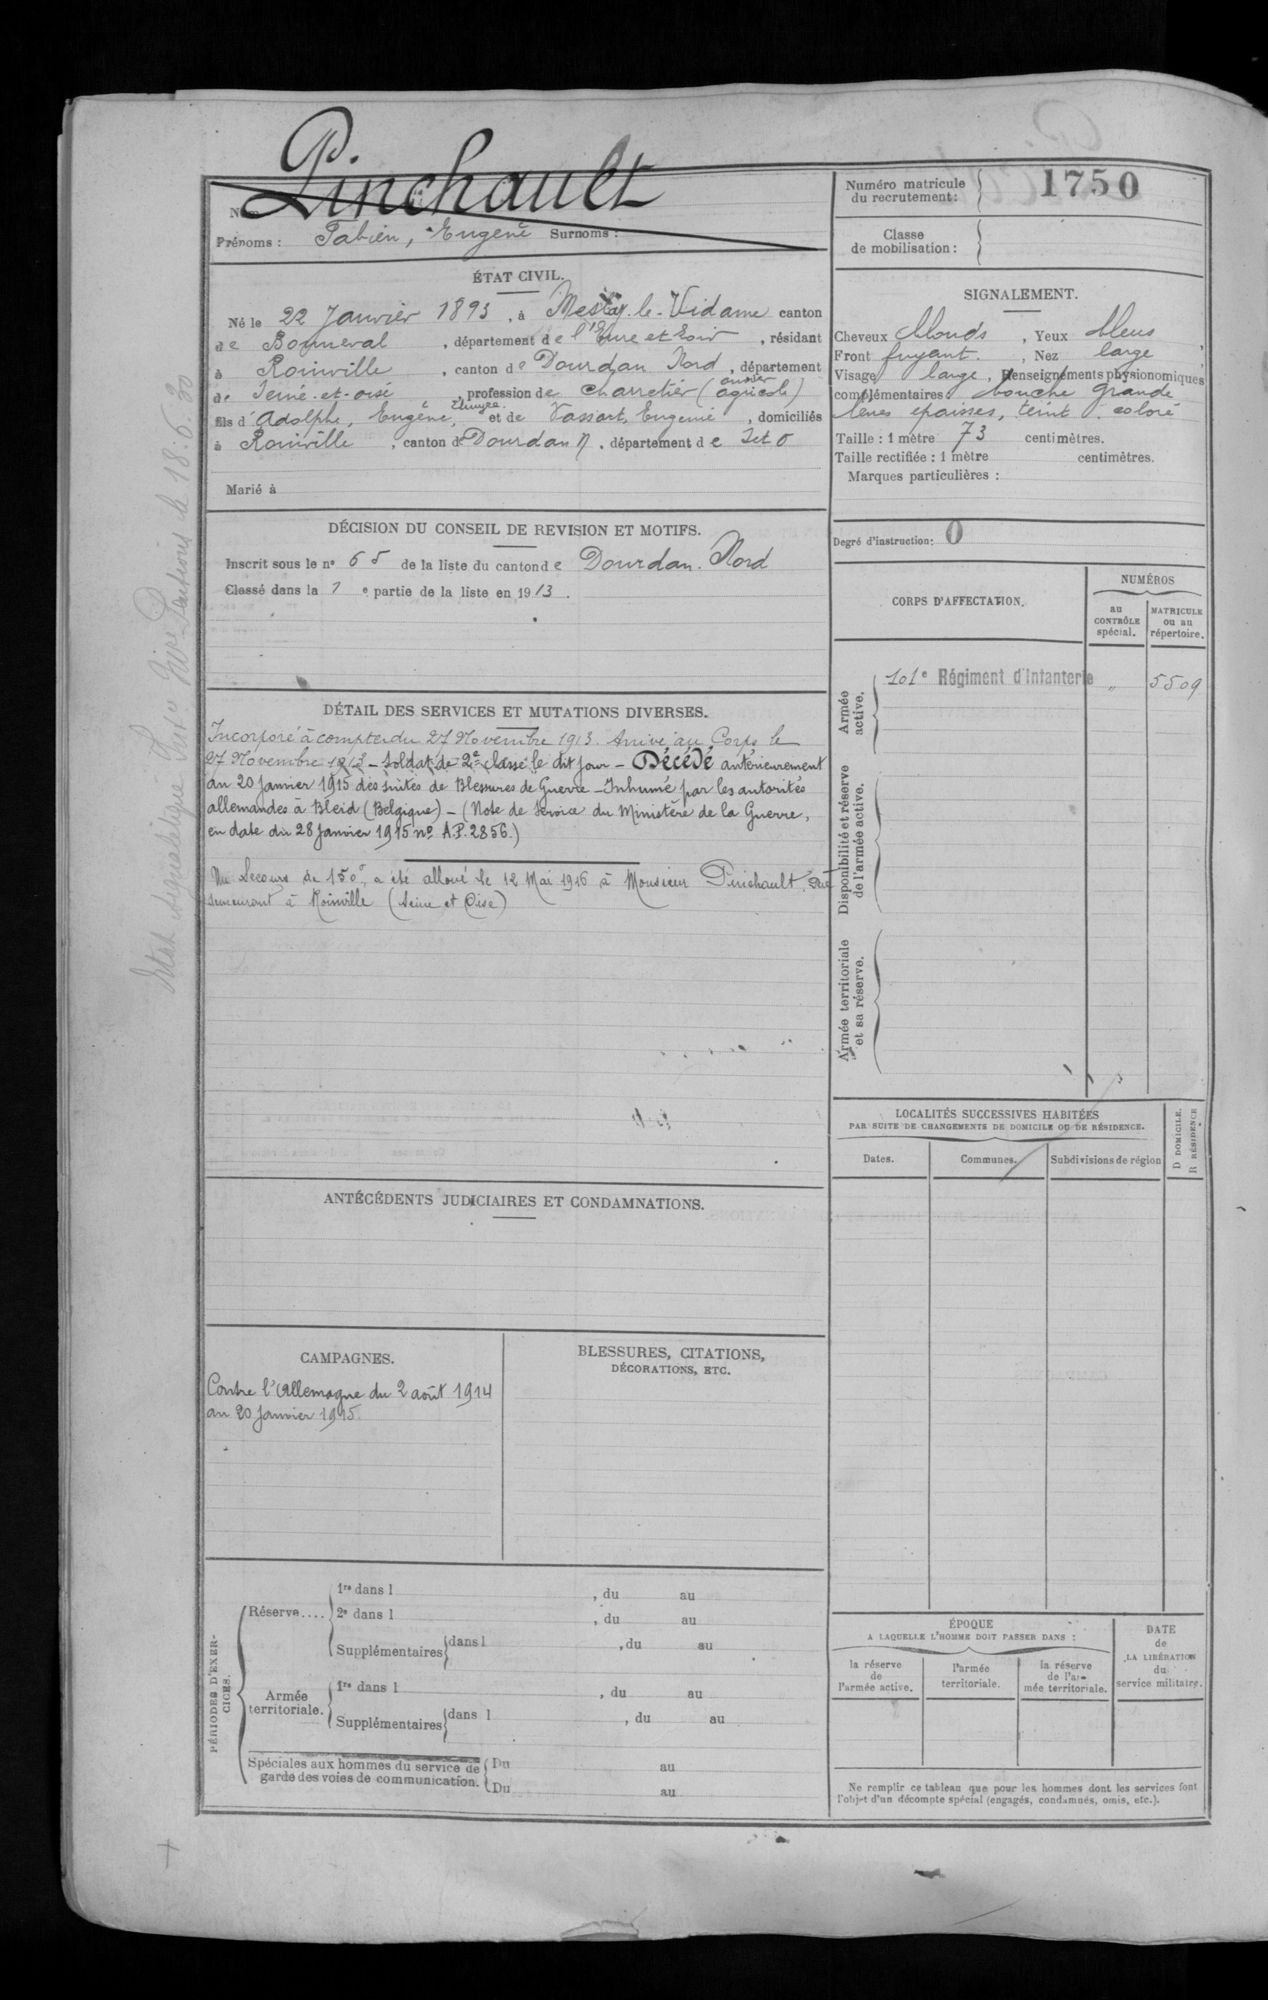 Pinchault
Nom
Prénoms : Fabien, Eugène Surnoms :
Numéro matricule du recrutement : 1750
Classe de mobilisation :
ÉTAT CIVIL.
Né le 22 Janvier 1893, à Meslay-le-Vidame canton
de Bonneval, département de l'Eure et Loir, résidant
à Roinville, canton de Dourdan Nord, département
de Seine-et-oise, profession de charretier (ouvrier agricole)
fils d'Adolphe, Eugène, et de Vassort, Eugénie, domiciliés
à Roinville, canton de Dourdan N, département de S et O
Marié à
SIGNALEMENT.
Cheveux blonds, Yeux bleus,
Front fuyant, Nez large
Visage large, Renseignements physionomiques
complémentaires : bouche grande
lèvres épaisses, teint coloré
Taille : 1 mètre 73 centimètres.
Taille rectifiée : 1 mètre centimètres.
Marques particulières :
Degré d'instruction : 0
DÉCISION DU CONSEIL DE REVISION ET MOTIFS.
Inscrit sous le n° 65 de la liste du canton de Dourdan. Nord
Classé dans la 1e partie de la liste en 1913.
CORPS D'AFFECTATION.
NUMÉROS
au CONTRÔLE spécial.
MATRICULE ou au répertoire.
Armée active.
101e Régiment d'Infanterie " 5509
Disponibilité et réserve de l'armée active.
Armée territoriale et sa réserve.
DÉTAIL DES SERVICES ET MUTATIONS DIVERSES.
Incorporé à compter du 27 Novembre 1913. Arrivé au Corps le
27 Novembre 1913 – Soldat de 2e classe le dit jour – Décédé antérieurement
au 20 Janvier 1915 des suites de Blessures de Guerre – Inhumé par les autorités
allemandes à Bleid (Belgique) – (Note de Service du Ministère de la Guerre,
en date du 28 Janvier 1915 n° A.P. 2856.)
Un Secours de 150f a été alloué le 12 Mai 1916 à Monsieur Pinchault, Père
demeurant à Roinville (Seine et Oise)
Etat signalétique Pensions le 18.6.30
LOCALITÉS SUCCESSIVES HABITÉES
PAR SUITE DE CHANGEMENTS DE DOMICILE OU DE RÉSIDENCE.
Dates. Communes. Subdivisions de région
D DOMICILE. R RÉSIDENCE
ANTÉCÉDENTS JUDICIAIRES ET CONDAMNATIONS.
CAMPAGNES.
Contre l'Allemagne du 2 août 1914
au 20 Janvier 1915.
BLESSURES, CITATIONS,
DÉCORATIONS, ETC.
PÉRIODES D'EXERCICES.
Réserve....
1re dans l , du au
2e dans l , du au
Supplémentaires dans l , du au
Armée territoriale.
1re dans l , du au
Supplémentaires dans l , du au
Spéciales aux hommes du service de
garde des voies de communication.
Du au
Du au
ÉPOQUE
A LAQUELLE L'HOMME DOIT PASSER DANS :
la réserve de l'armée active.
l'armée territoriale.
la réserve de l'armée territoriale.
DATE de LA LIBÉRATION du service militaire.
Ne remplir ce tableau que pour les hommes dont les services font
l'objet d'un décompte spécial (engagés, condamnés, omis, etc.).